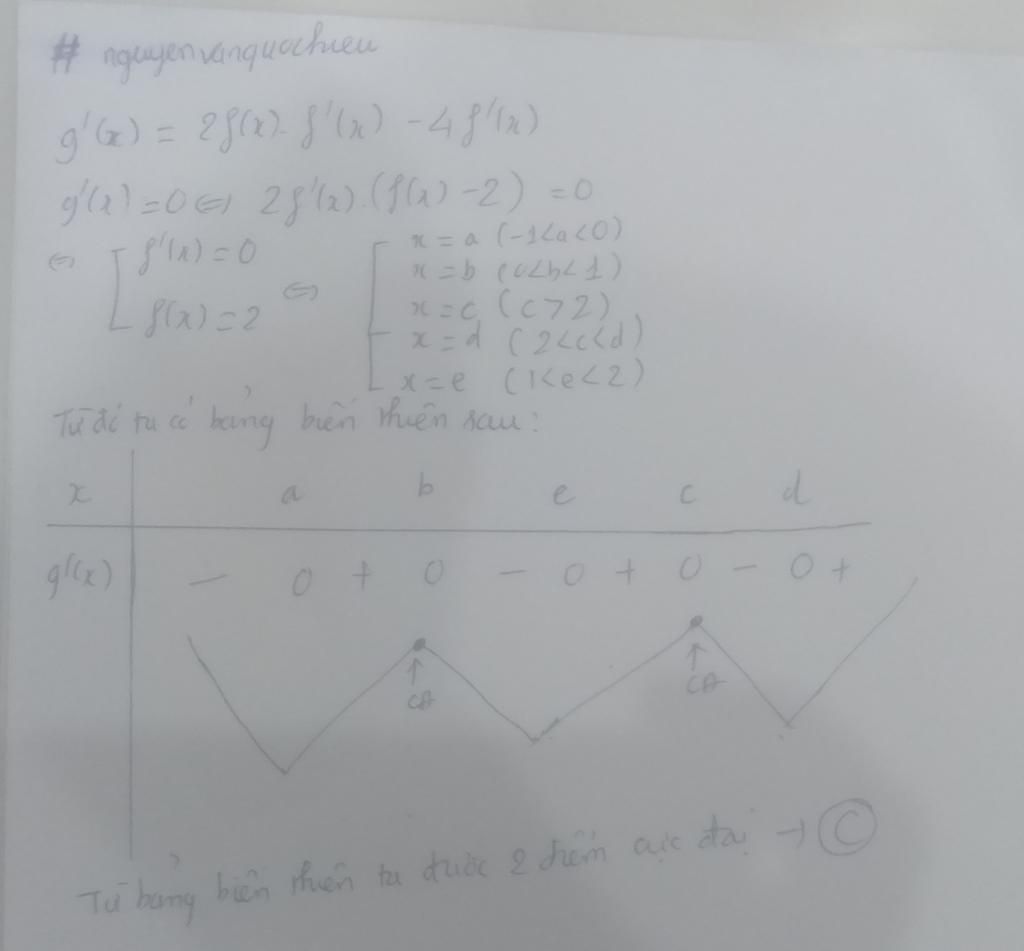 # nguyenvanquochieu
g'(x) = 2f(x). f'(x) - 4f'(x)
g'(x) = 0 ⇔ 2f'(x).(f(x) - 2) = 0
⇔ [ f'(x) = 0
f(x) = 2 ⇔
[ x = a (-1<a<0)
x = b (0<b<1)
x = c (c>2)
x = d (2<c<d)
x = e (1<e<2)
Từ đó ta có bảng biến thiên sau:
x a b e c d
g'(x) - 0 + 0 - 0 + 0 - 0 +
↑ ↑
CĐ CĐ
Từ bảng biến thiên ta được 2 điểm cực đại → C